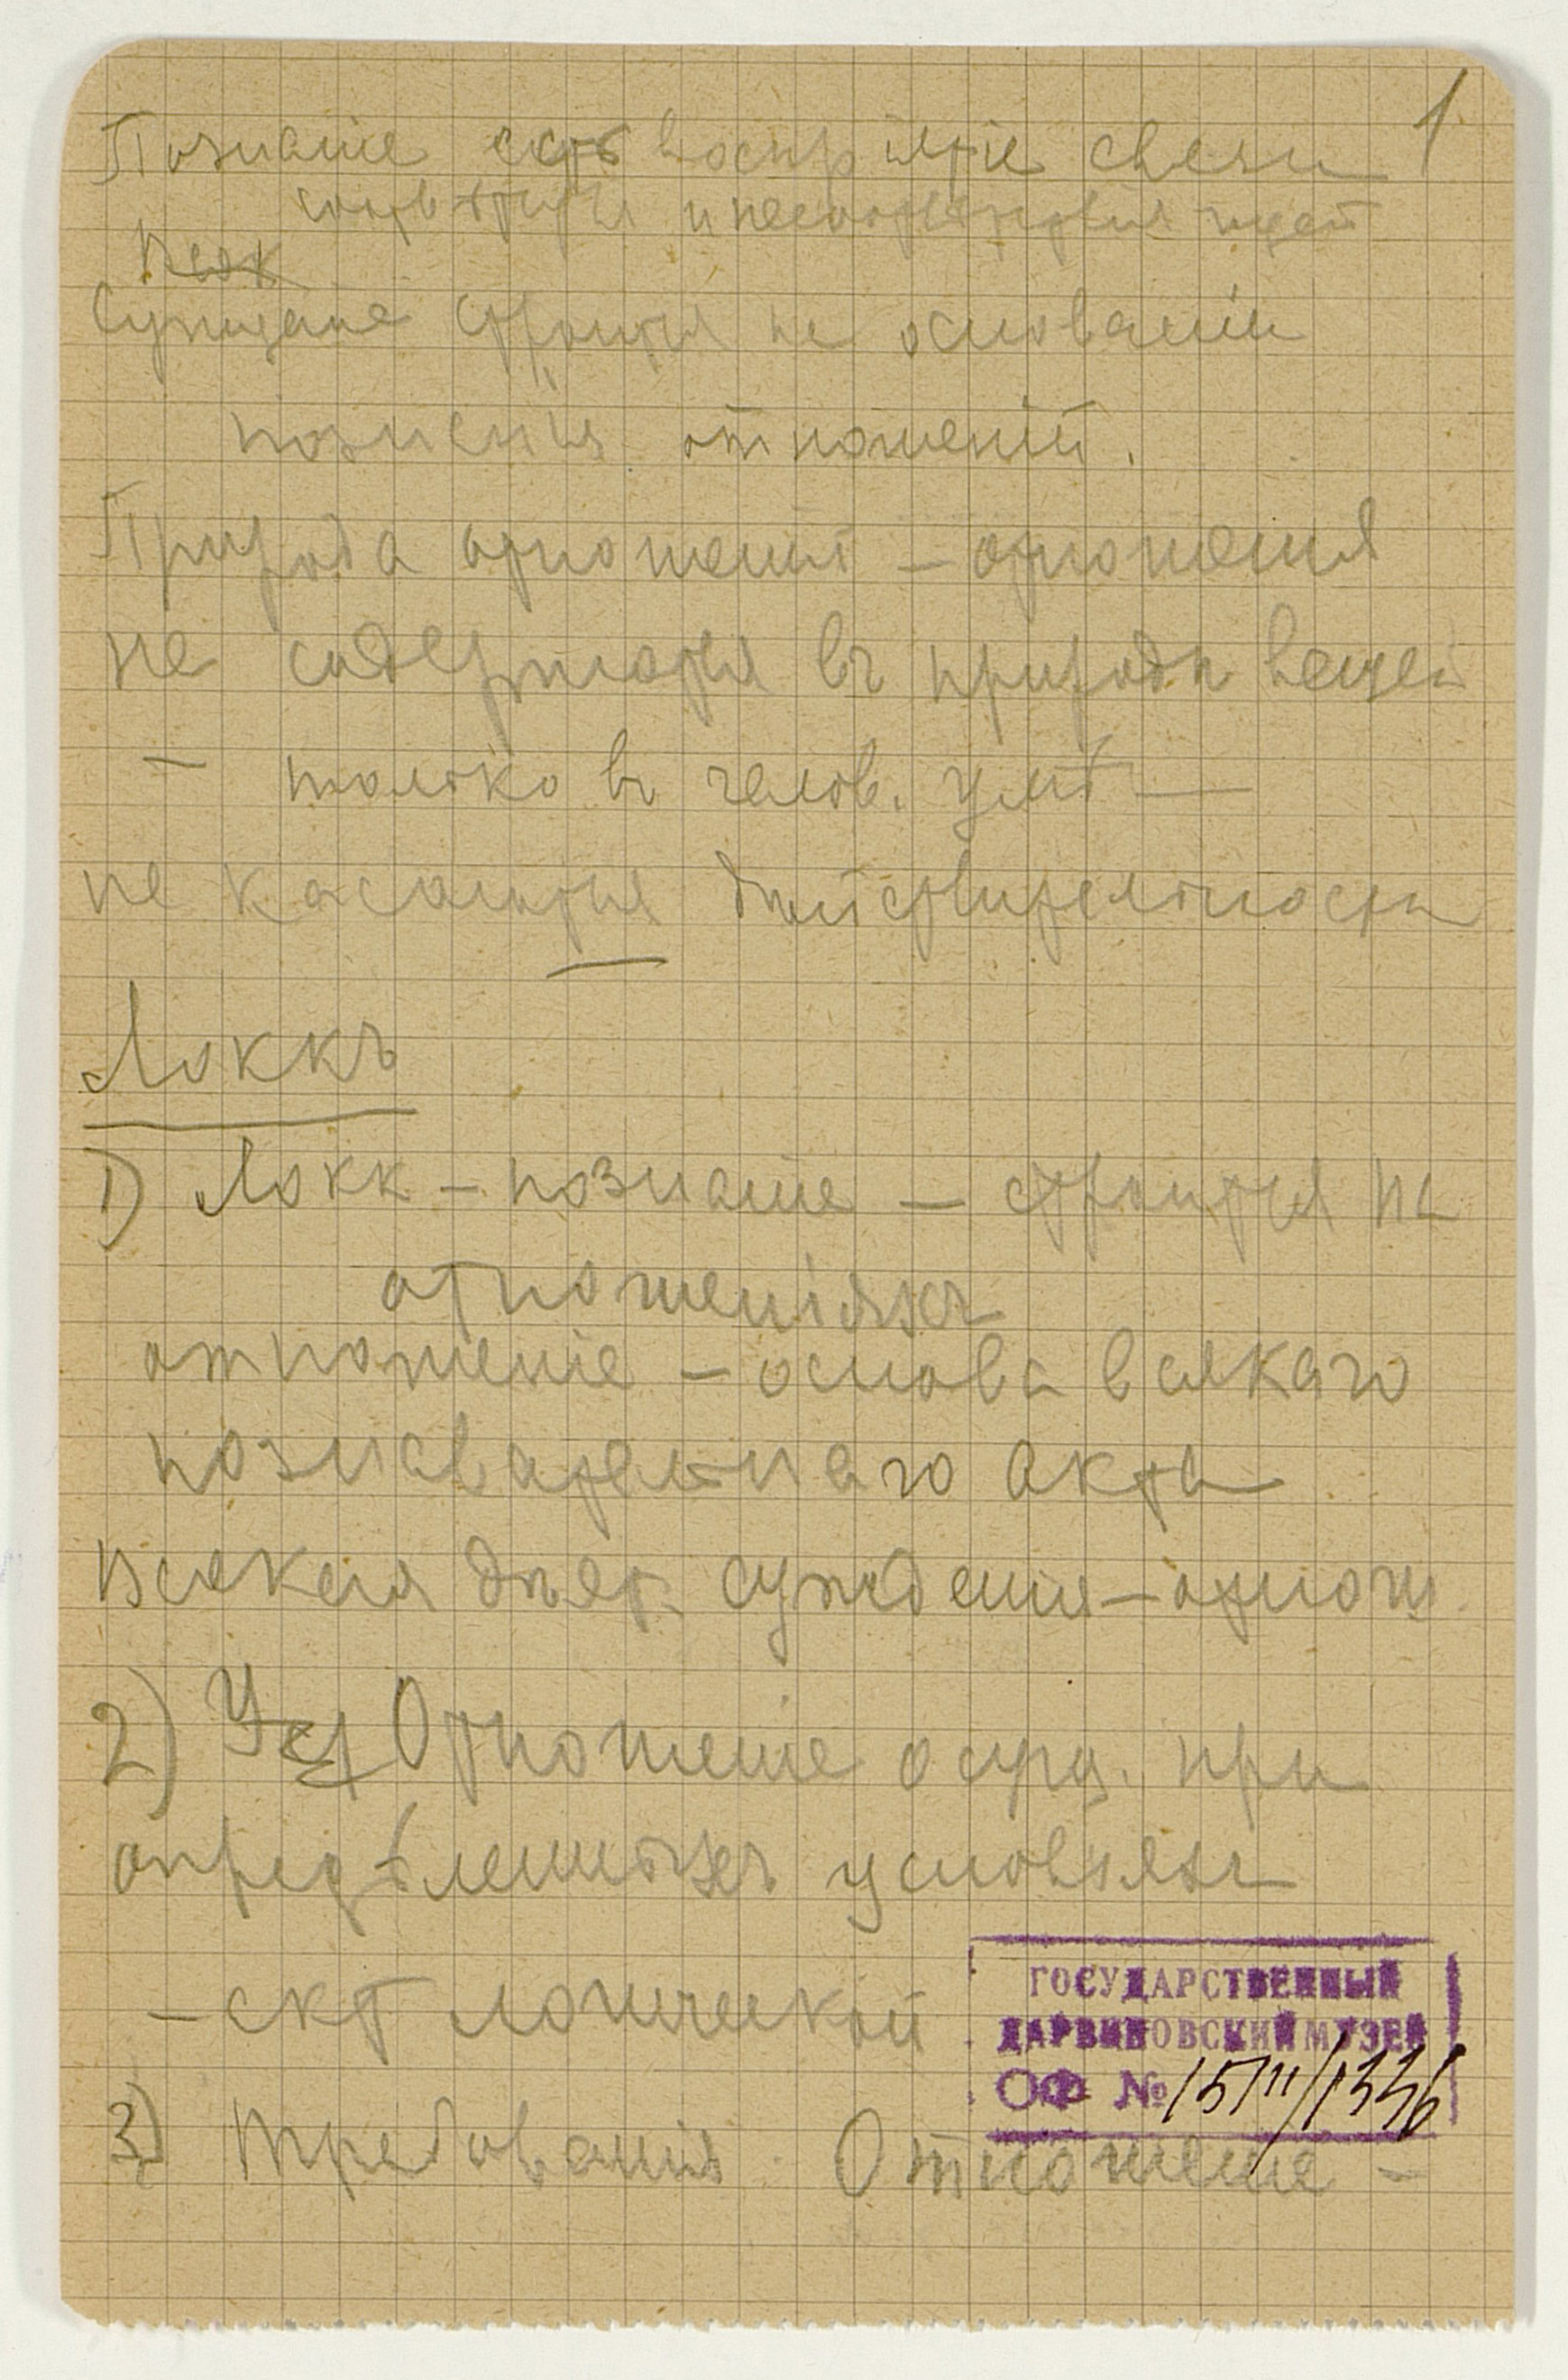 1
Познаніе есть воспріятіе связи
соотвѣтствія и несоотвѣтствія идей
Сужденіе строится на основаніи
познанія отношеній.
Природа отношеній – отношенія
не содержатся въ природѣ вещей
– только въ челов. умѣ –
не касаются дѣйствительности
Локкъ
1) Локк – познаніе – строится на
отношеніяхъ
отношеніе – основа всякаго
познавательнаго акта
всякая сужденія – отнош.
2) Отношеніе осущ. при
опредѣленныхъ условіяхъ
– логической
3) Требованія Отношеніе –
ГОСУДАРСТВЕННЫЙ
ДАРВИНОВСКИЙ МУЗЕЙ
ОФ № 15111/1336